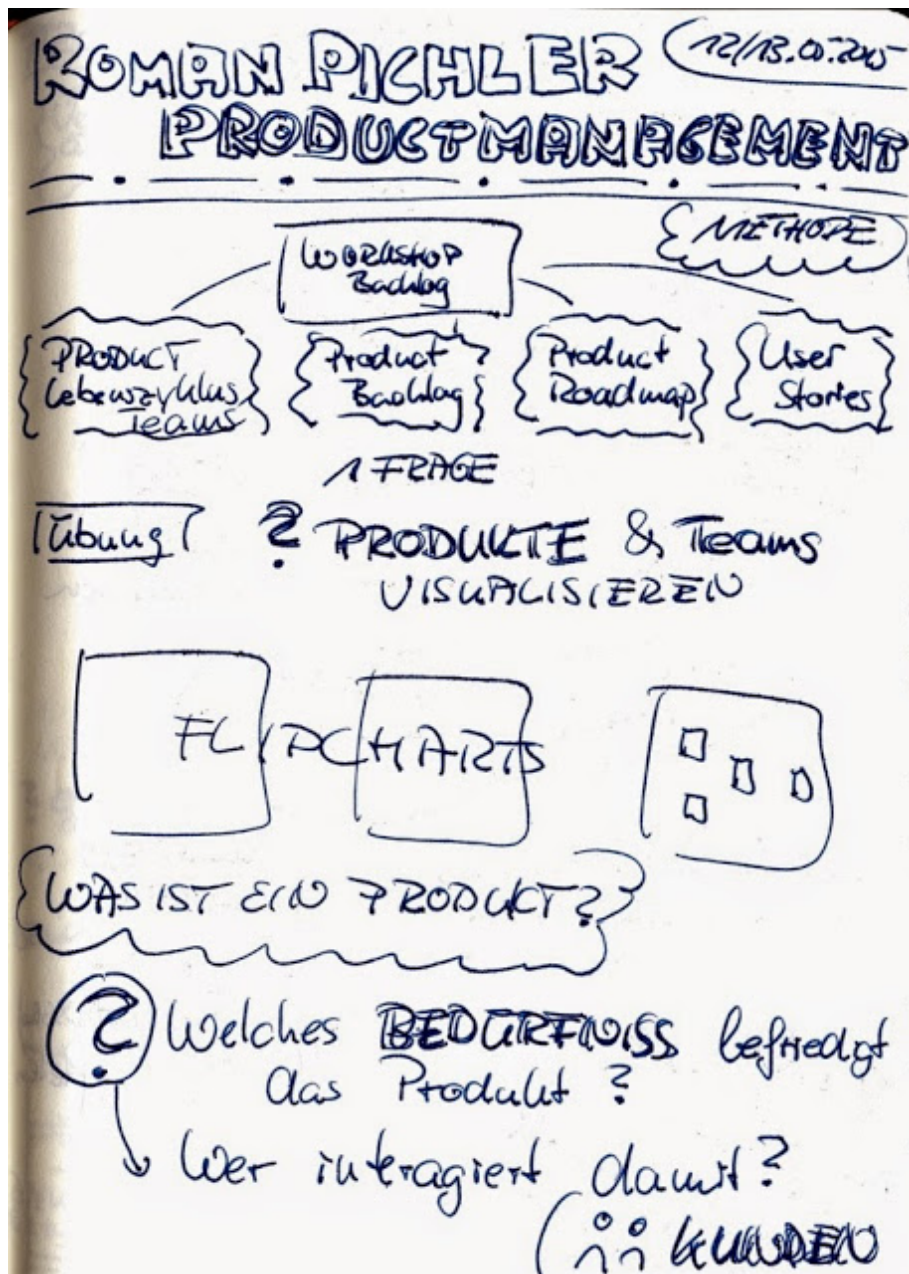 ROMAN PICHLER
PRODUCTMANAGEMENT
METHODE
WORKSHOP
Backlog
PRODUCT
Lebenszyklus
Teams
Product
Backlog
Product
Roadmap
User
Stories
1 FRAGE
Übung ? PRODUKTE & Teams
VISUALISIEREN
FLIPCHARTS
WAS IST EIN PRODUKT?
? Welches BEDÜRFNISS befriedigt
das Produkt?
Wer interagiert damit?
KUNDEN